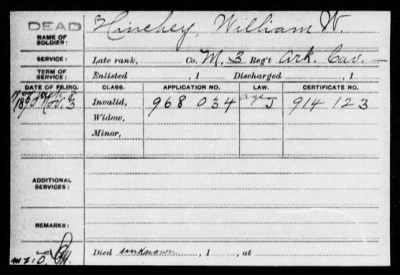 DEAD
NAME OF SOLDIER: Hinchey, William W.
SERVICE: Late rank, Co. M, 3 Reg't Ark. Cav.
TERM OF SERVICE: Enlisted , 1 Discharged , 1
DATE OF FILING. CLASS. APPLICATION NO. LAW. CERTIFICATE NO.
Invalid, 968 034 J 914 123
Widow,
Minor,
ADDITIONAL SERVICES:
REMARKS:
Died unknown , 1 , at